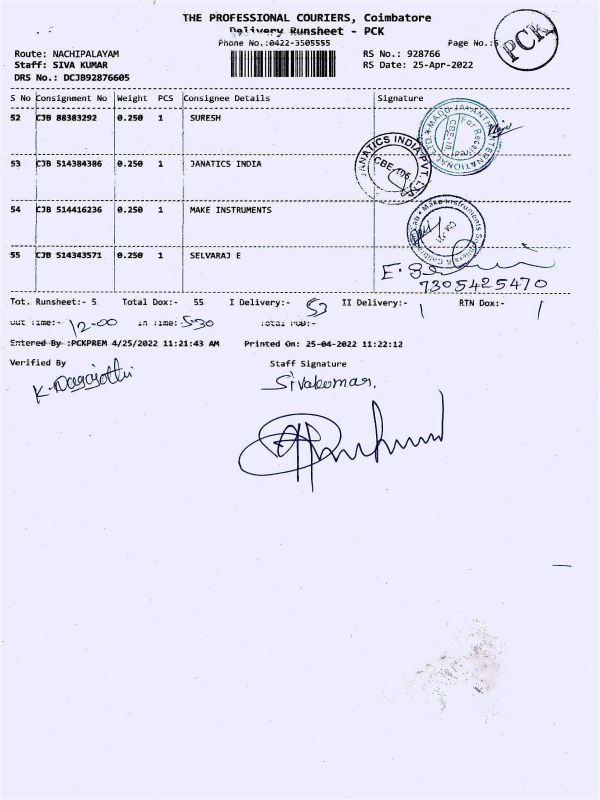 THE PROFESSIONAL COURIERS, Coimbatore
Delivery Runsheet - PCK
Phone No.:0422-3505555
Page No.:5
PCK
Route: NACHIPALAYAM
RS No.: 928766
Staff: SIVA KUMAR
RS Date: 25-Apr-2022
DRS No.: DCJB92876605
S No Consignment No Weight PCS Consignee Details Signature
52 CJB 88383292 0.250 1 SURESH
53 CJB 514384386 0.250 1 JANATICS INDIA
JANATICS INDIA PVT. LTD
54 CJB 514416236 0.250 1 MAKE INSTRUMENTS
55 CJB 514343571 0.250 1 SELVARAJ E
7305425470
Tot. Runsheet:- 5 Total Dox:- 55 I Delivery:- 53 II Delivery:- 1 RTN Dox:- 1
Out Time:- 12-00 In Time: 5-30 Total POD:-
Entered By :PCKPREM 4/25/2022 11:21:43 AM Printed On: 25-04-2022 11:22:12
Verified By Staff Signature
Sivakumar.